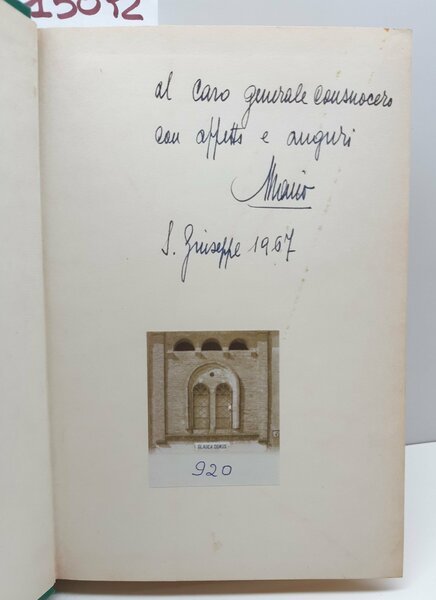 15042
al caro generale consuocero
con affetto e auguri
Mario
S. Giuseppe 1967
GLAUCA DOMUS
920